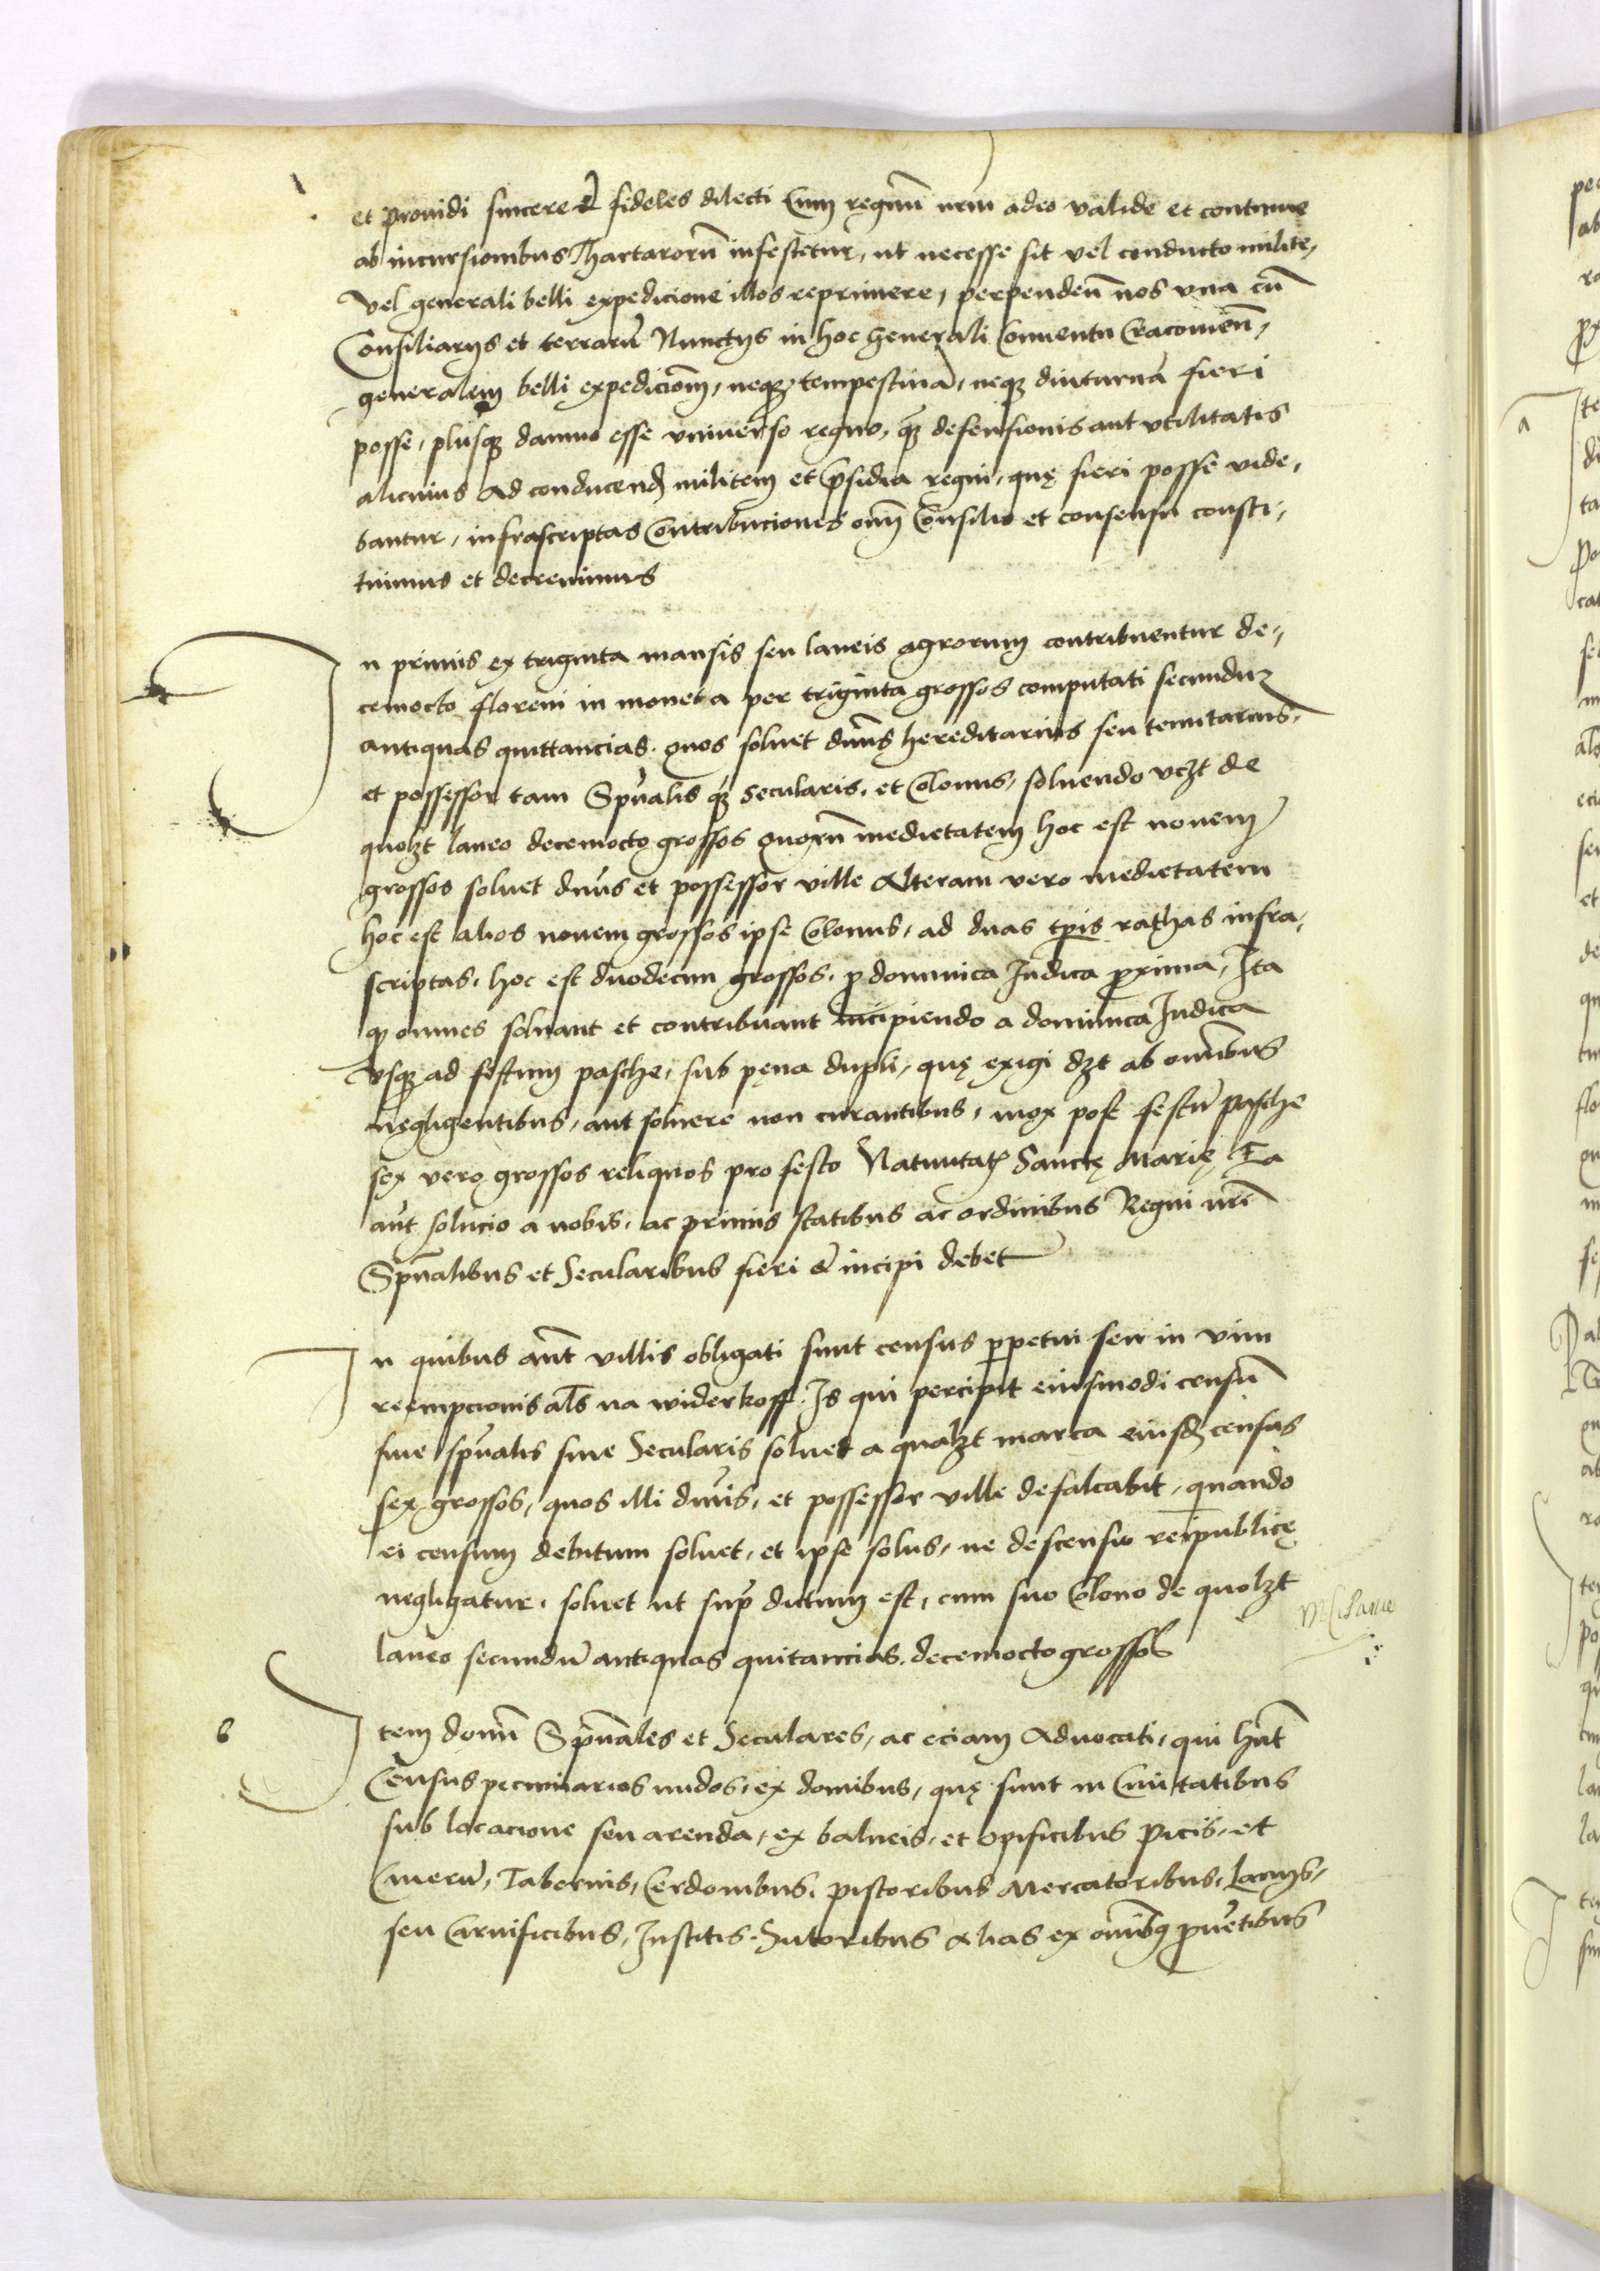 et prouidi sincere et fideles dilecti Cum regnũ nrm̃ adeo valide et continue
ab incursionibus Thartarorũ infestetur, ut necesse sit vel conducto milite,
vel generali belli expedicione illos reprimere, perpendeñ nos vna cũ
Consiliarijs et terrarũ Nuncijs in hoc generali Conuentu Cracouieñ,
generalem belli expedicioñm, neqꝫ tempestiuã, neqꝫ diuturnã fieri
posse, plusqꝫ damno esse vniuerso regno, qꝫ defensionis aut vtilitatis
alicuius Ad conducenđ militem et p̃sidia regni, quę fieri posse vide,
bantur, infrascriptas Contribuciones oim̃ Consilio et consensu consti,
tuimus et decreuimus
In primis ex triginta mansis seu laneis agrorum contribuentur de,
cemocto floreni in moneta per triginta grossos computati secunduꝫ
antiquas quittancias. quos soluet dñus hereditarius seu tenutarius,
et possessor tam Spũalis qꝫ secularis, et Colonus, soluendo vcꝫt de
quolꝫt laneo decemocto grossos quorũ medietatem hoc est nouem
grossos soluet dñus et possessor ville Alteram vero medietatem
hoc est alios nouem grossos ipse Colonus, ad duas tp̃is rathas infra,
scriptas, hoc est duodecim grossos, ꝓ dominica Iudica ꝓxima, Ita
qꝫ omnes soluant et contribuant incipiendo a dominica Iudica
vsqꝫ ad festum pasche, sub pęna dupli, quę exigi dꝫt ab omnibus
negligentibus, aut soluere non curantibus, mox post festũ pasche
sex vero grossos reliquos pro festo Natiuitatꝭ Sanctę Marię Ea
aũt solucio a nobis, ac primis statibus ac ordinibus Regni nrĩ
Spũalibus et Secularibus fieri et incipi debet
In quibus aũt villis obligati sunt census ꝑpetui seu in vim
reempcionis als̃ na widerkoff. Is qui percipit eiusmodi censũ
siue spũalis siue Secularis soluet a qualꝫt marca eiusđ census
sex grossos, quos illi dñus, et possessor ville defalcabit, quando
ei censum debitum soluet, et ipse solus, ne descensio reipublicę
negligatur, soluet ut sup̃ dictum est, cum suo Colono de quolꝫt
laneo secundũ antiquas quitancias decemocto grossos
6
Item domĩ Spũales et Seculares, ac eciam Aduocati, qui hñt
Census pecuniarios nudos, ex domibus, quę sunt in Ciuitatibus
sub locacione seu arenda, ex balneis, et opificibus picis, et
Cinerũ, Tabernis, Cerdonibus, pistoribus Mercatoribus, Lanijs,
seu Carnificibus, Institis. Sutoribus Alias ex om̃ibꝫ ꝓuẽtibus